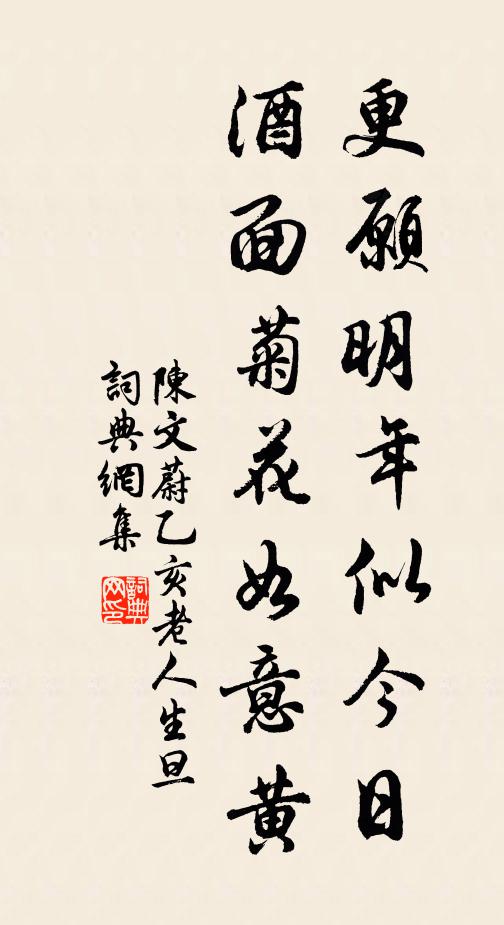 更願明年似今日
酒面菊花如意黃
陳文蔚乙亥老人生旦
詞典網集
詞典網印